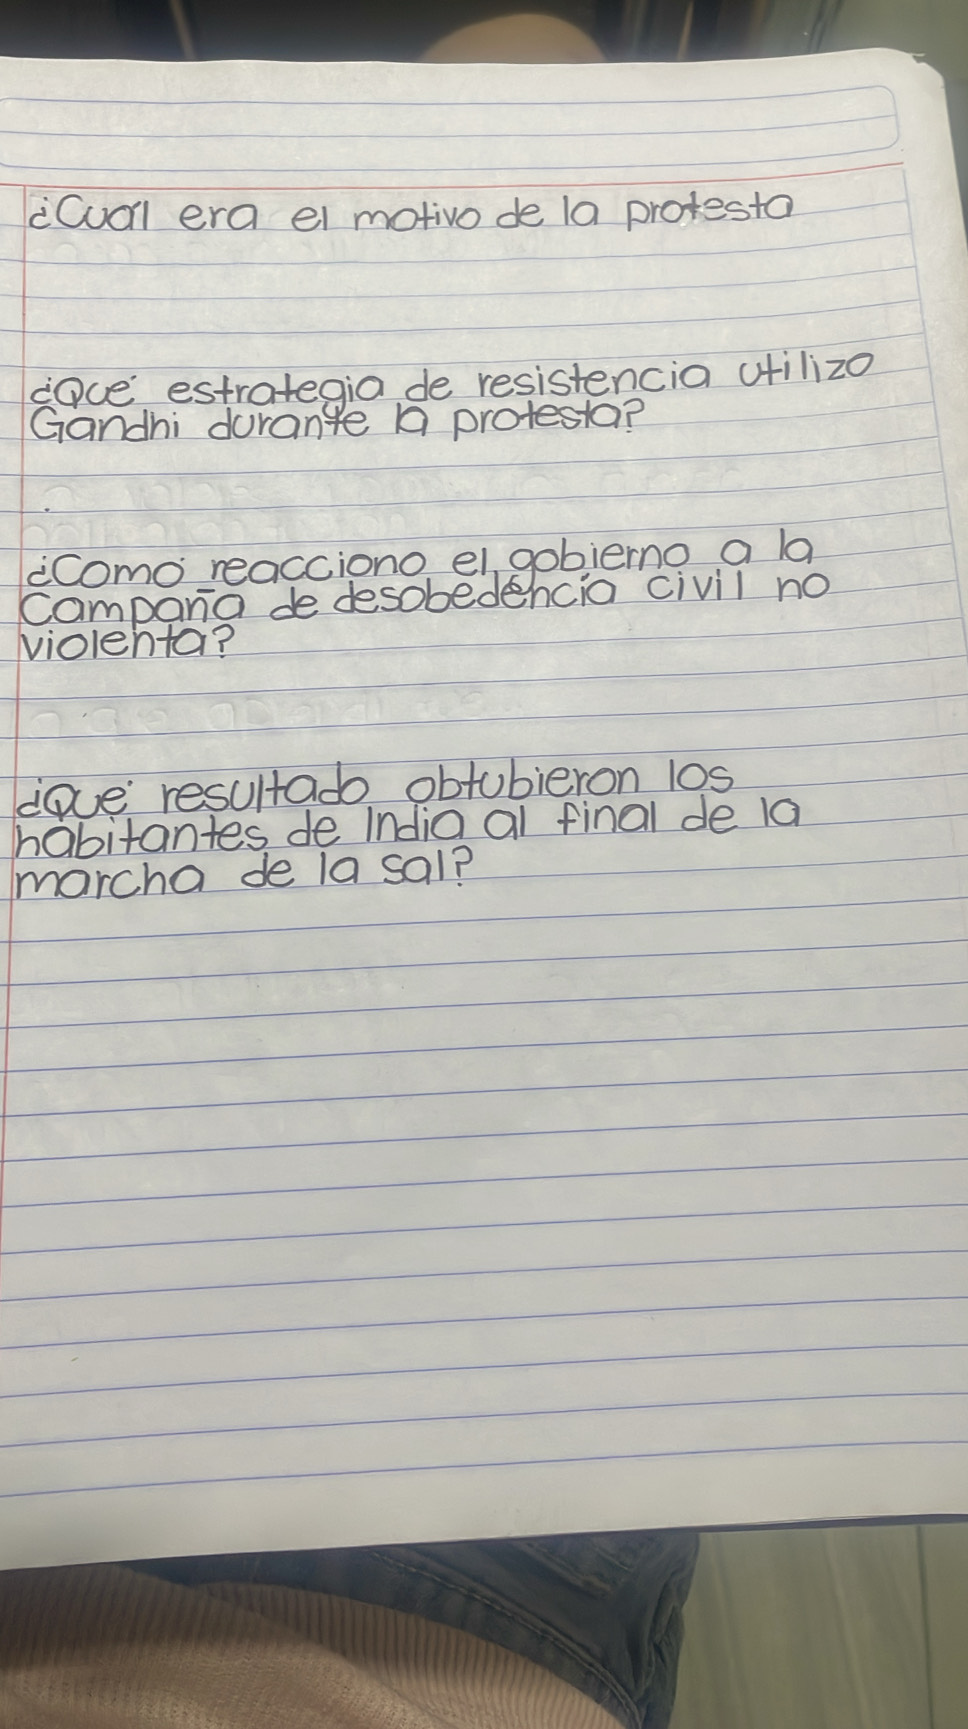 ¿Cuál era el motivo de la protesta
¿Qué estrategia de resistencia utilizo
Gandhi durante la protesta?
¿Cómo reacciono el gobierno a la
Campaña de desobedencia civil no
violenta?
¿Qué resultado obtubieron los
habitantes de India al final de la
marcha de la sal?